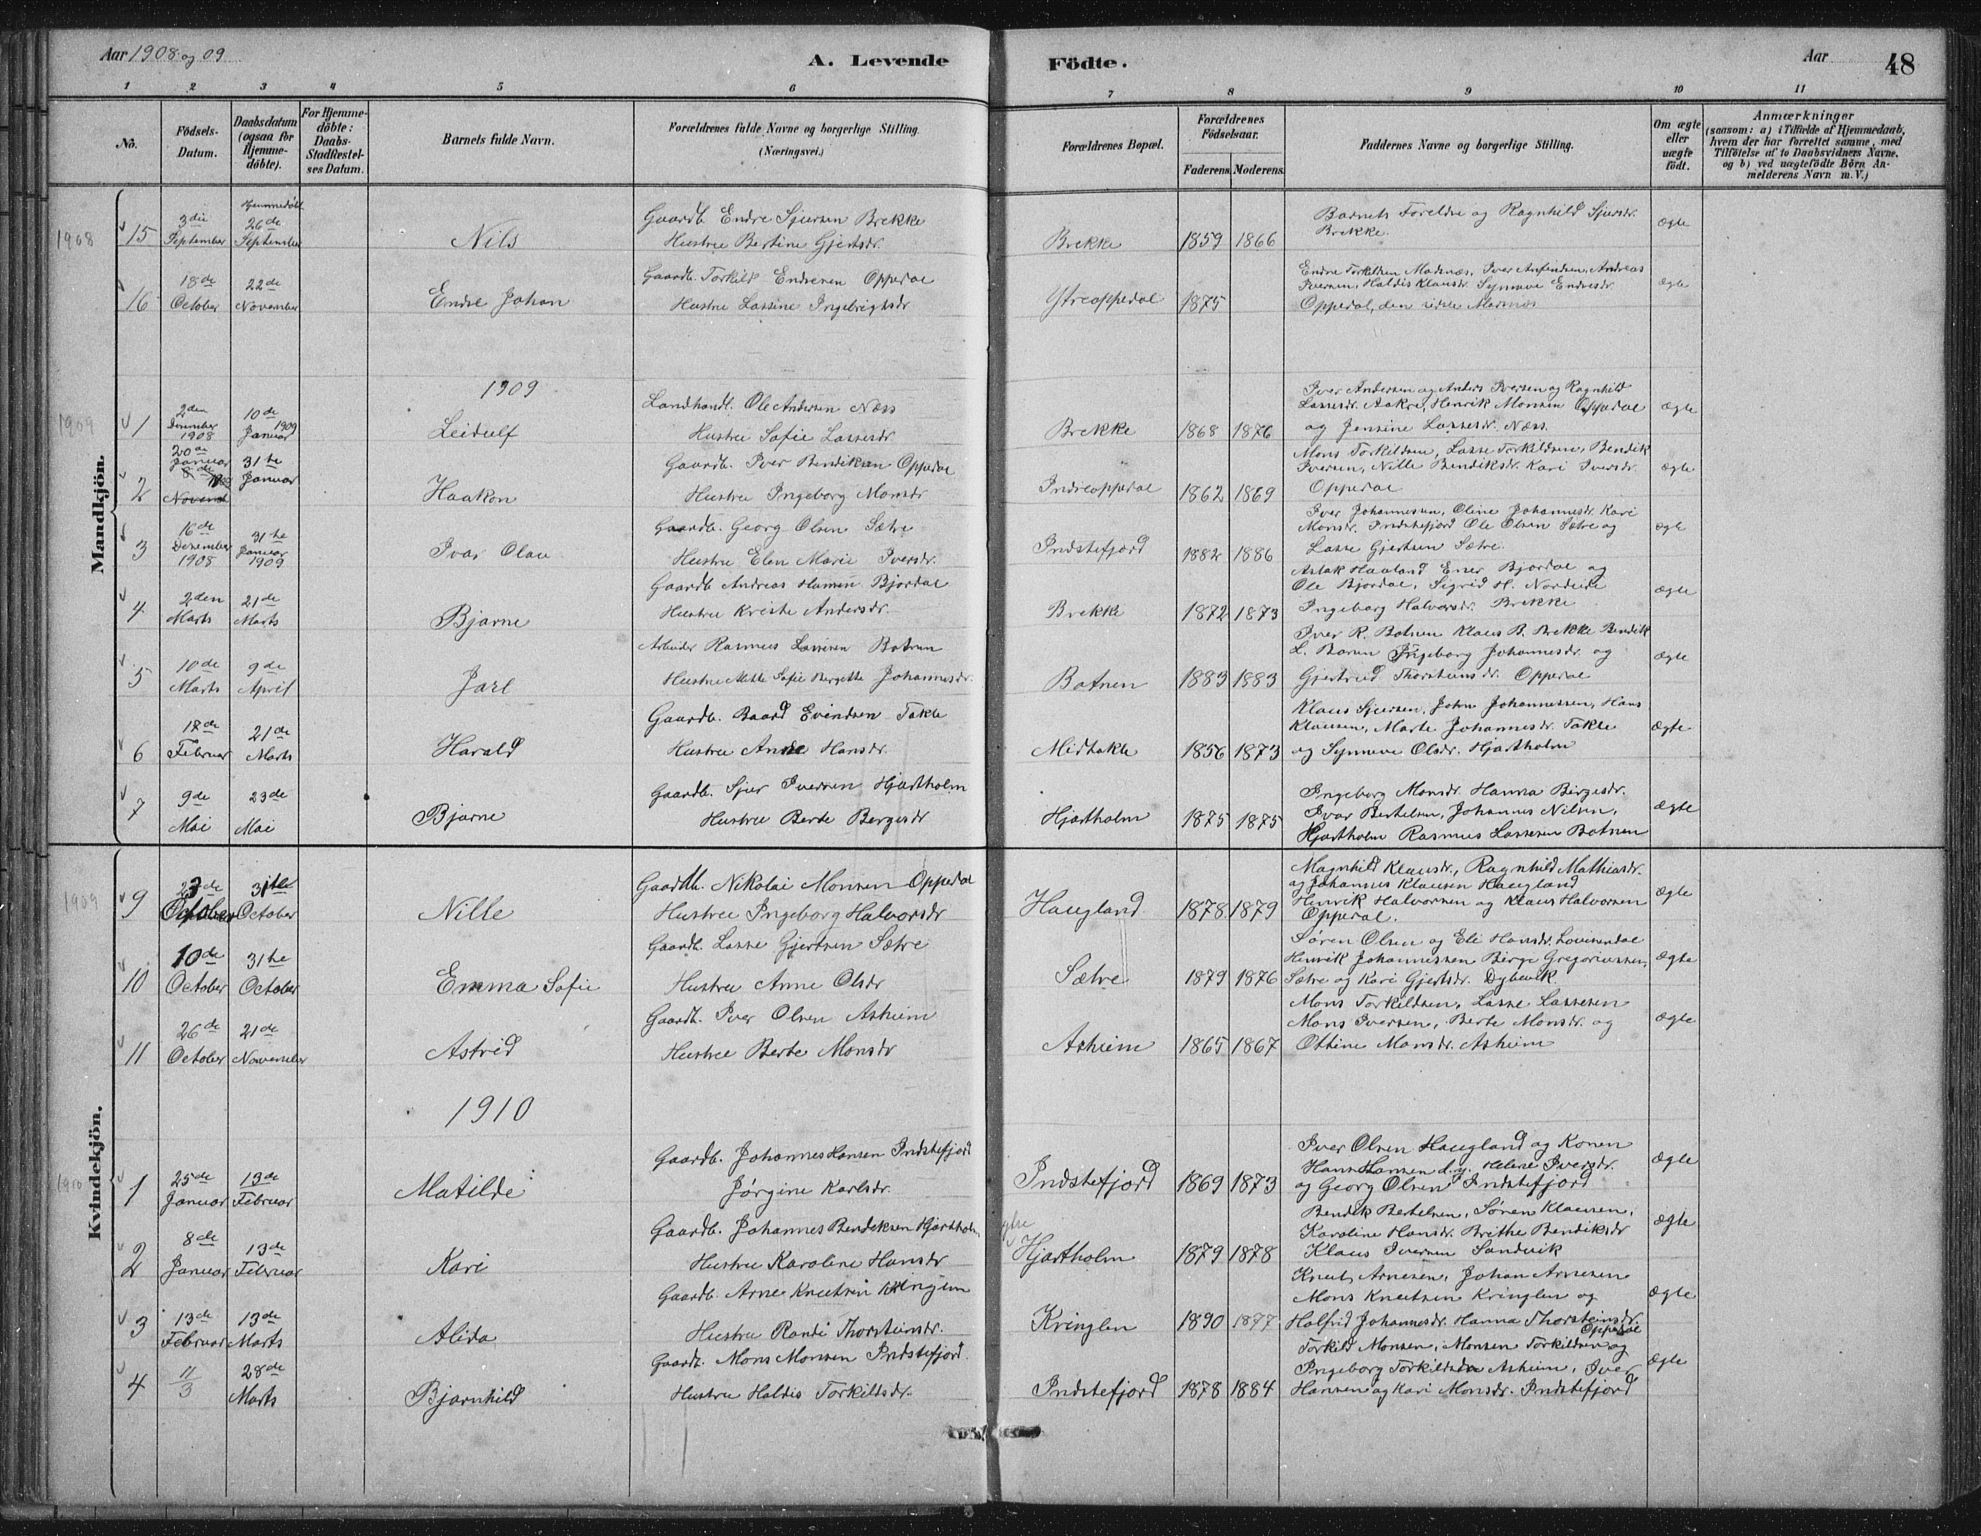 Aar 1908 og 09
A. Levende
Födte.
Aar
48
1 2 3 4 5 6 7 8 9 10 11
No.
Födsels-
Datum.
Daabsdatum
(ogsaa for
Hjemme-
döbte).
For Hjemme-
döbte:
Daabs-
Stadfæstel-
ses Datum.
Barnets fulde Navn.
Forældrenes fulde Navne og borgerlige Stilling.
(Næringsvei.)
Forældrenes Bopæl.
Forældrenes
Födselsaar.
Faderens. Moderens.
Faddernes Navne og borgerlige Stilling.
Om ægte
eller
uægte
födt.
Anmærkninger
(saasom: a) i Tilfælde af Hjemmedaab,
hvem der har forrettet samme, med
Tilföielse af to Daabsvidners Navne,
og b) ved uægtefödte Börn An-
melderens Navn m. V.)
Mandkjön.
1908
15
3die
September
Hjemmedöbt
26de
September
Nils
Gaardb. Endre Sjursen Brekke
Hustru Bertine Gjertsdr.
Brekke
1859 1866
Barnets Foreldre og Ragnhild Sjursdr.
Brekke.
ægte
16
18de
October
22de
November
Endre Johan
Gaardb. Torkild Endresen Oppedal
Hustru Lassine Ingebrigtsdr
Ytreoppedal
1875
Endre Torkildsen Masnæs, Iver Anfindsen, Andreas
Iversen, Haldis Klausdr. Synneve Endresdr.
Oppedal, den sidste Masnæs
ægte
1909
1909
1
2den
Desember
1908
10de
Januar 1909
Leidulf
Landhandl. Ole Andersen Næss
Hustru Sofie Lassesdr.
Brekke
1868 1876
Iver Andersen og Anders Iversen og Ragnhild
Lassesdr. Aakre, Henrik Monsen Oppedal
og Jensine Lassesdr. Næss
ægte
2
20de
Januar
1909
Novemb
31te
Januar
Haakon
Gaardb. Iver Bendiksen Oppedal
Hustru Ingeborg Monsdr.
Indreoppedal
1862 1869
Mons Torkildsen, Lasse Torkildsen, Bendik
Iversen, Nille Bendiksdr. Kari Iversdr.
Oppedal
ægte
3
16de
Desember
1908
31te
Januar
1909
Ivar Olai
Gaardb. Georg Olsen Sætre
Hustru Elen Marie Iversdr.
Indstefjord
1882 1886
Iver Johannesen, Oline Johannesdr. Kari
Monsdr. Indstefjord Ole Olsen Sætre og
Lasse Gjertsen Sætre.
ægte
4
2den
Marts
21de
Marts
Bjarne
Gaardb Andreas Hansen Bjordal
Hustru Kriste Andersdr.
Brekke
1872 1873
Aslak Haaland Ener Bjordal og
Ole Bjordal, Sigrid H. Nordeide
Ingeborg Halvorsdr. Brekke
ægte
5
10de
Marts
9de
April
Jarl
Arbeider Rasmus Lassesen Botnen
Hustru Mette Sofie Bergette Johannesdr.
Botnen
1883 1883
Iver R. Botnen Klaus B. Brekke Bendik
L. Ingeborg Johannesdr. og
Gjertrud Thorsteinsdr. Oppedal
ægte
6
17de
Februar
21de
Marts
Harald
Gaardb. Baard Evindsen Takle
Hustru Anne Hansdr.
Midtakle
1856 1873
Klaus Sjursen, John Johannessen, Hans
Klausen, Marte Johannesdr. Takle
og Synneve Olsdr. Hjartholm
ægte
7
9de
Mai
23de
Mai
Bjarne
Gaardb. Sjur Iversen Hjartholm
Hustru Berte Bergesdr
Hjartholm
1875 1875
Ingeborg Monsdr. Hanna Birgesdr.
Ivar Bertelsen, Johannes Nilsen,
Hjartholm Rasmus Lassesen Botnen
ægte
Kvindekjön.
1909
9
23de
October
31te
October
Nille
Gaardb. Nikolai Monsen Oppedal
Hustru Ingeborg Halvorsdr
Haugland
1878 1879
Magnhild Klausdr., Ragnhild Mathiasdr.
og Johannes Klausen Haugland
Henrik Halvorsen og Klaus Halvorsen
Oppedal.
ægte
10
10de
October
31te
October
Emma Sofie
Gaardb. Lasse Gjertsen Sætre
Hustru Anne Olsdr
Sætre
1879 1876
Søren Olsen og Eli Hansdr. Lovisendal
Henrik Johannessen Birge Gregoriussen,
Sætre og Kari Gjertsdr. Dybevik
ægte
11
26de
October
21de
November
Astrid
Gaardb. Iver Olsen Asheim
Hustru Berte Monsdr
Asheim
1865 1867
Mons Torkildsen, Lasse Lassesen
Mons Iversen, Berte Monsdr. og
Ottine Monsdr. Asheim
ægte
1910
1910
1
25de
Januar
13de
Februar
Matilde
Gaardb. Johannes Hansen Indstefjord
Jørgine Karlsdr.
Indstefjord
1869 1873
Iver Olsen Haugland og Konen
Hans Hansen d.y. Helene Iversdr.
og Georg Olsen Indstefjord
ægte
2
8de
Januar
13de
Februar
Kari
Gaardb. Johannes Bendiksen Hjartholm
Hustru Karoline Hansdr
Hjartholm
1879 1878
Bendik Bertelsen, Søren Klausen,
Karoline Hansdr. Brithe Bendiksdr
Klaus Iversen Sandvik
ægte
3
13de
Februar
13de
Marts
Alida
Gaardb. Arne Knutsen
Hustru Randi Thorsteinsdr.
Kringlen
1890 1877
Knut Arnesen, Johan Arnesen
Mons Knutsen Kringlen og
Halfrid Johannesdr. Hanna Thorsteinsdr.
Oppedal
ægte
4
11/3
28de
Marts
Bjarnhild
Gaardb. Mons Monsen Indstefjord.
Hustru Haldis Torkildsdr.
Indstefjord
1878 1884
Torkild Monsen, Monsen Torkildsen og
Ingeborg Torkildsdr Asheim, Iver
Hansen og Kari Monsdr. Indstefjord
ægte